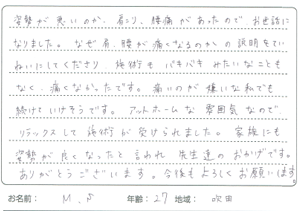 姿勢が悪いのか、肩こり、腰痛があったので お世話に
なりました。なぜ肩、腰が痛くなるのかの説明をてい
ねいにしてくださり 施術も バキバキ みたいなことも
なく、痛くなかったです。痛いのが嫌いな私でも
続けていけそうです。アットホームな 雰囲気なので
リラックスして 施術が受けられました。家族にも
姿勢が良くなったと言われ 先生達のおかげです。
ありがとうございます。今後もよろしくお願いします
お名前： M.S 年齢：27 地域： 吹田